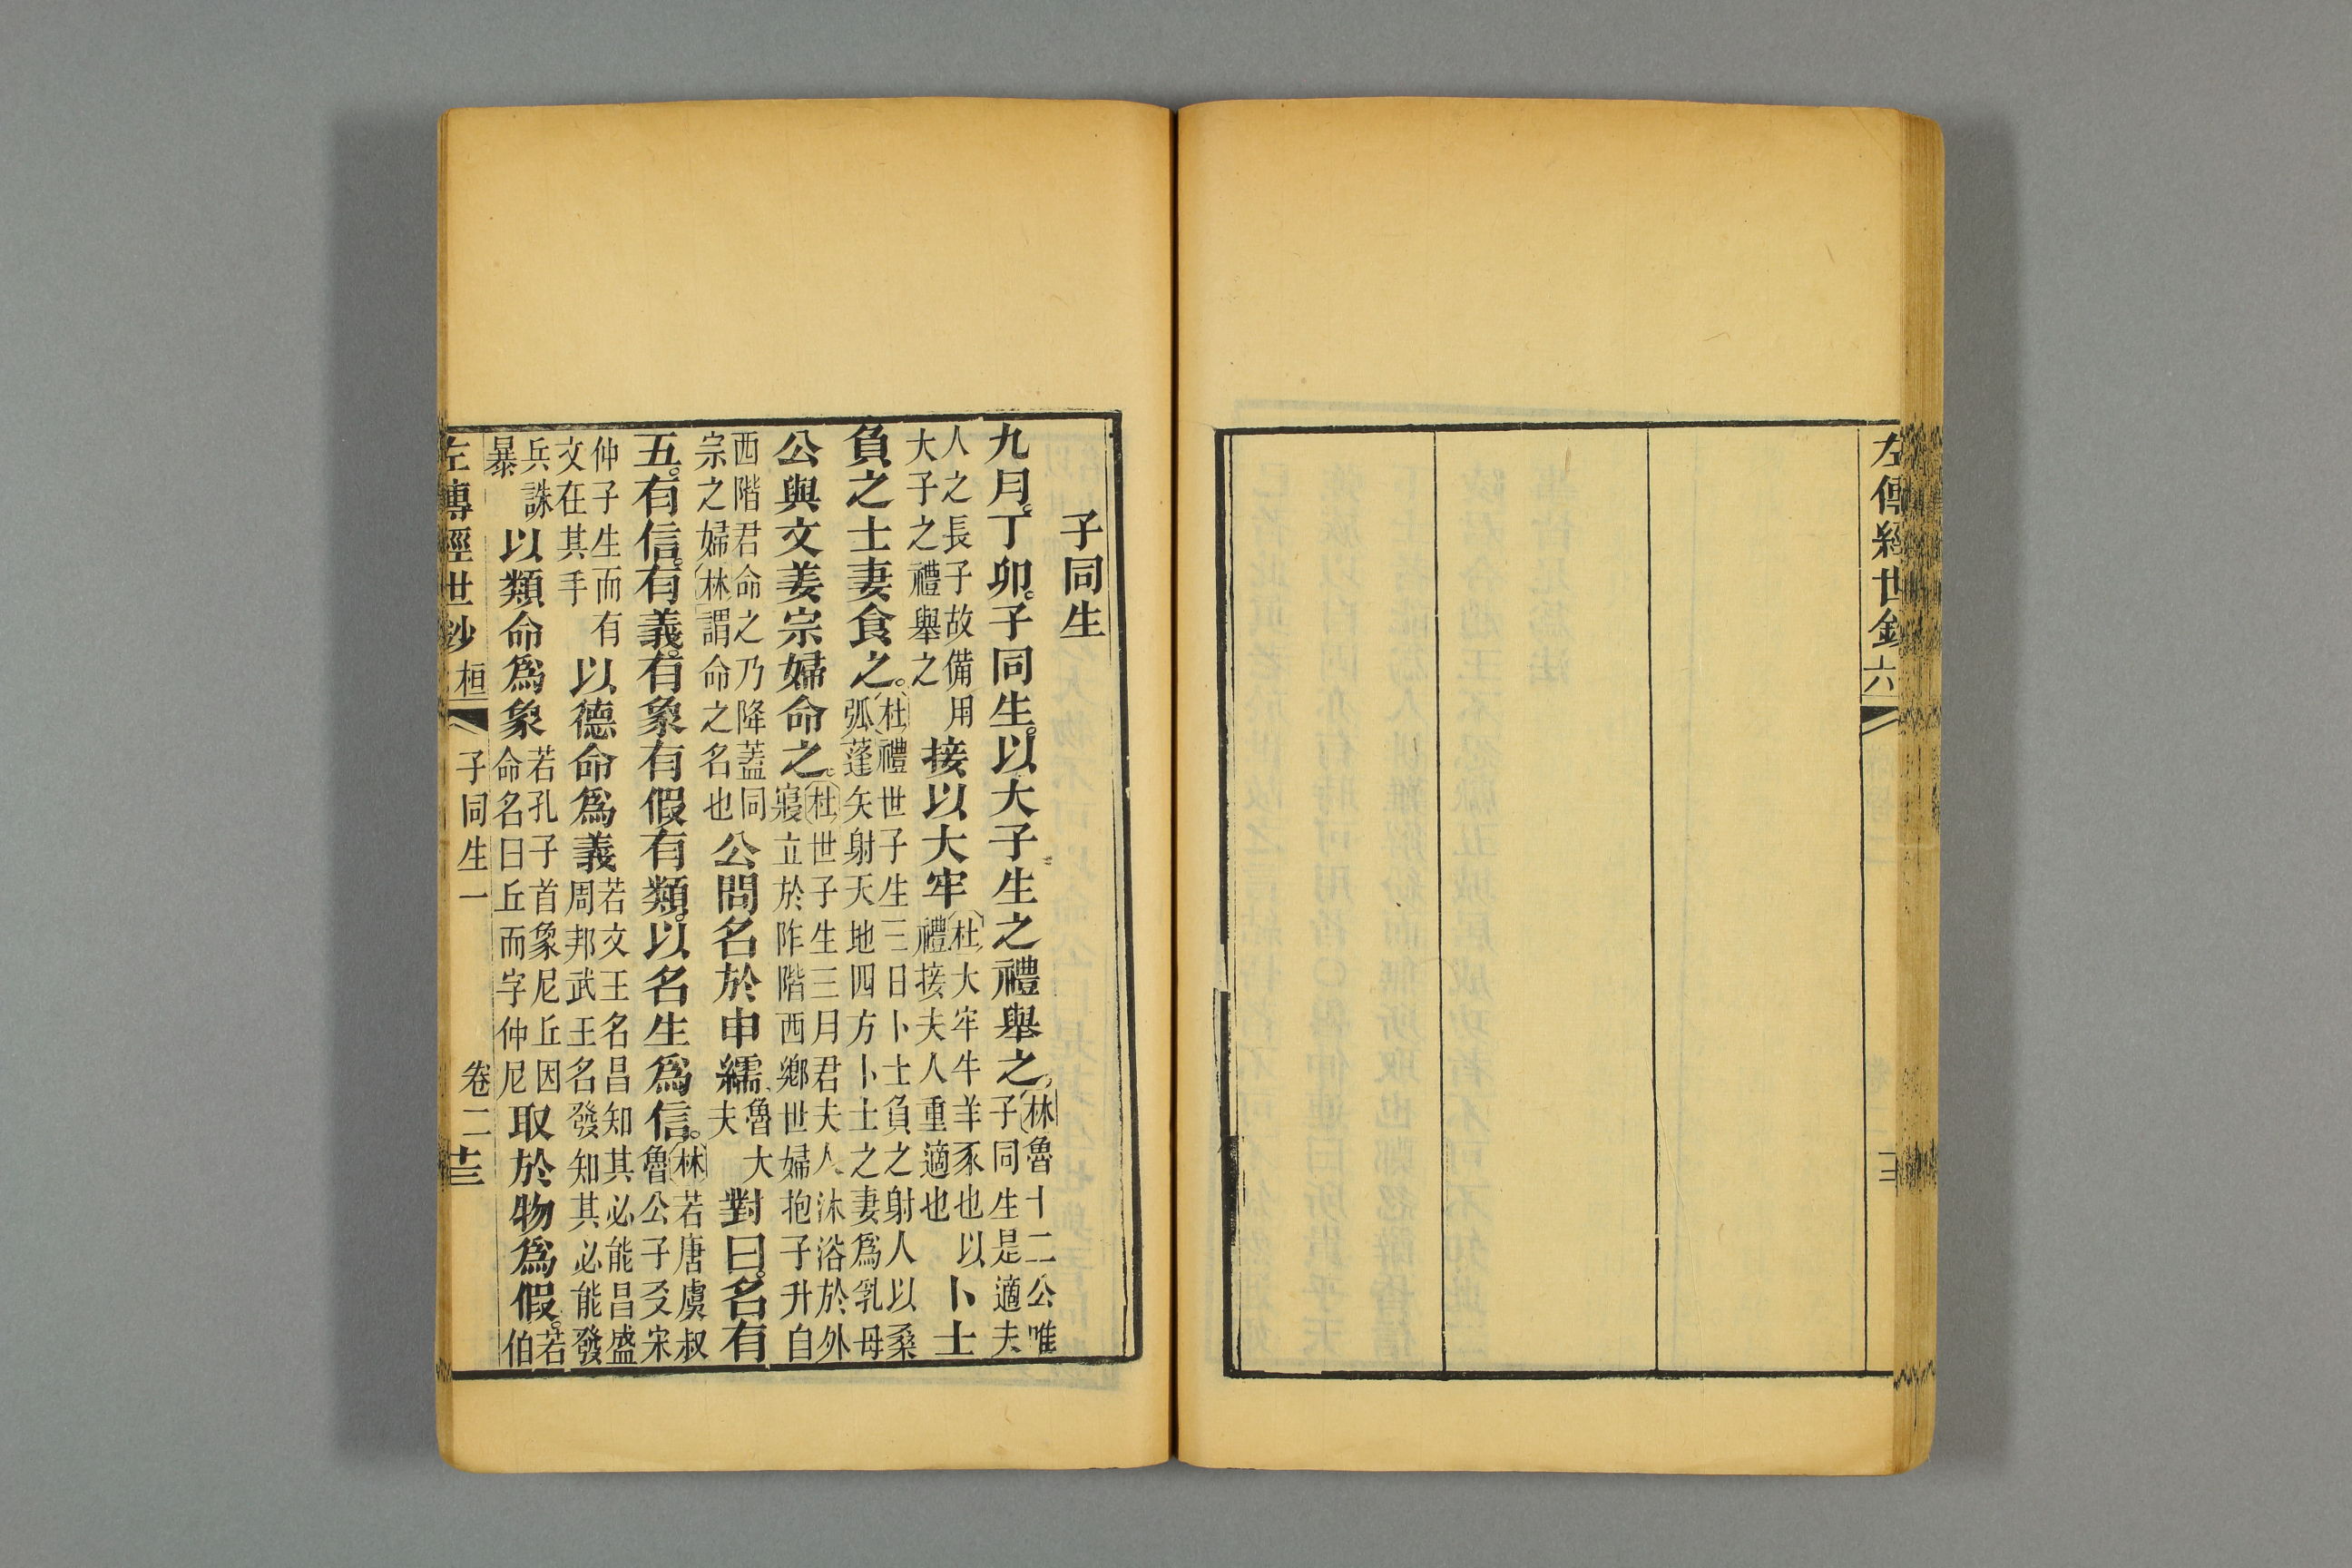 左傳經世鈔
六
子同生
九月丁卯子同生以大子生之禮舉之林魯十二公唯
子同生是適夫
人之長子故備用
大子之禮舉之接以大牢杜大牢牛羊豕也以
禮接夫人重適也卜士
負之士妻食之杜禮世子生三日卜士負之射人以桑
弧蓬矢射天地四方卜士之妻爲乳母
公與文姜宗婦命之杜世子生三月君夫人沐浴於外
寢立於阼階西鄉世婦抱子升自
西階君命之乃降蓋同
宗之婦林謂命之名也公問名於申繻魯大
夫對曰名有
五有信有義有象有假有類以名生爲信林若唐虞叔
魯公子友宋
仲子生而有
文在其手以德命爲義若文王名昌知其必能昌盛
周邦武王名發知其必能發
兵誅
暴以類命爲象若孔子首象尼丘因
命名曰丘而字仲尼取於物爲假若
伯
左傳經世鈔
桓
子同生一
卷二
十三